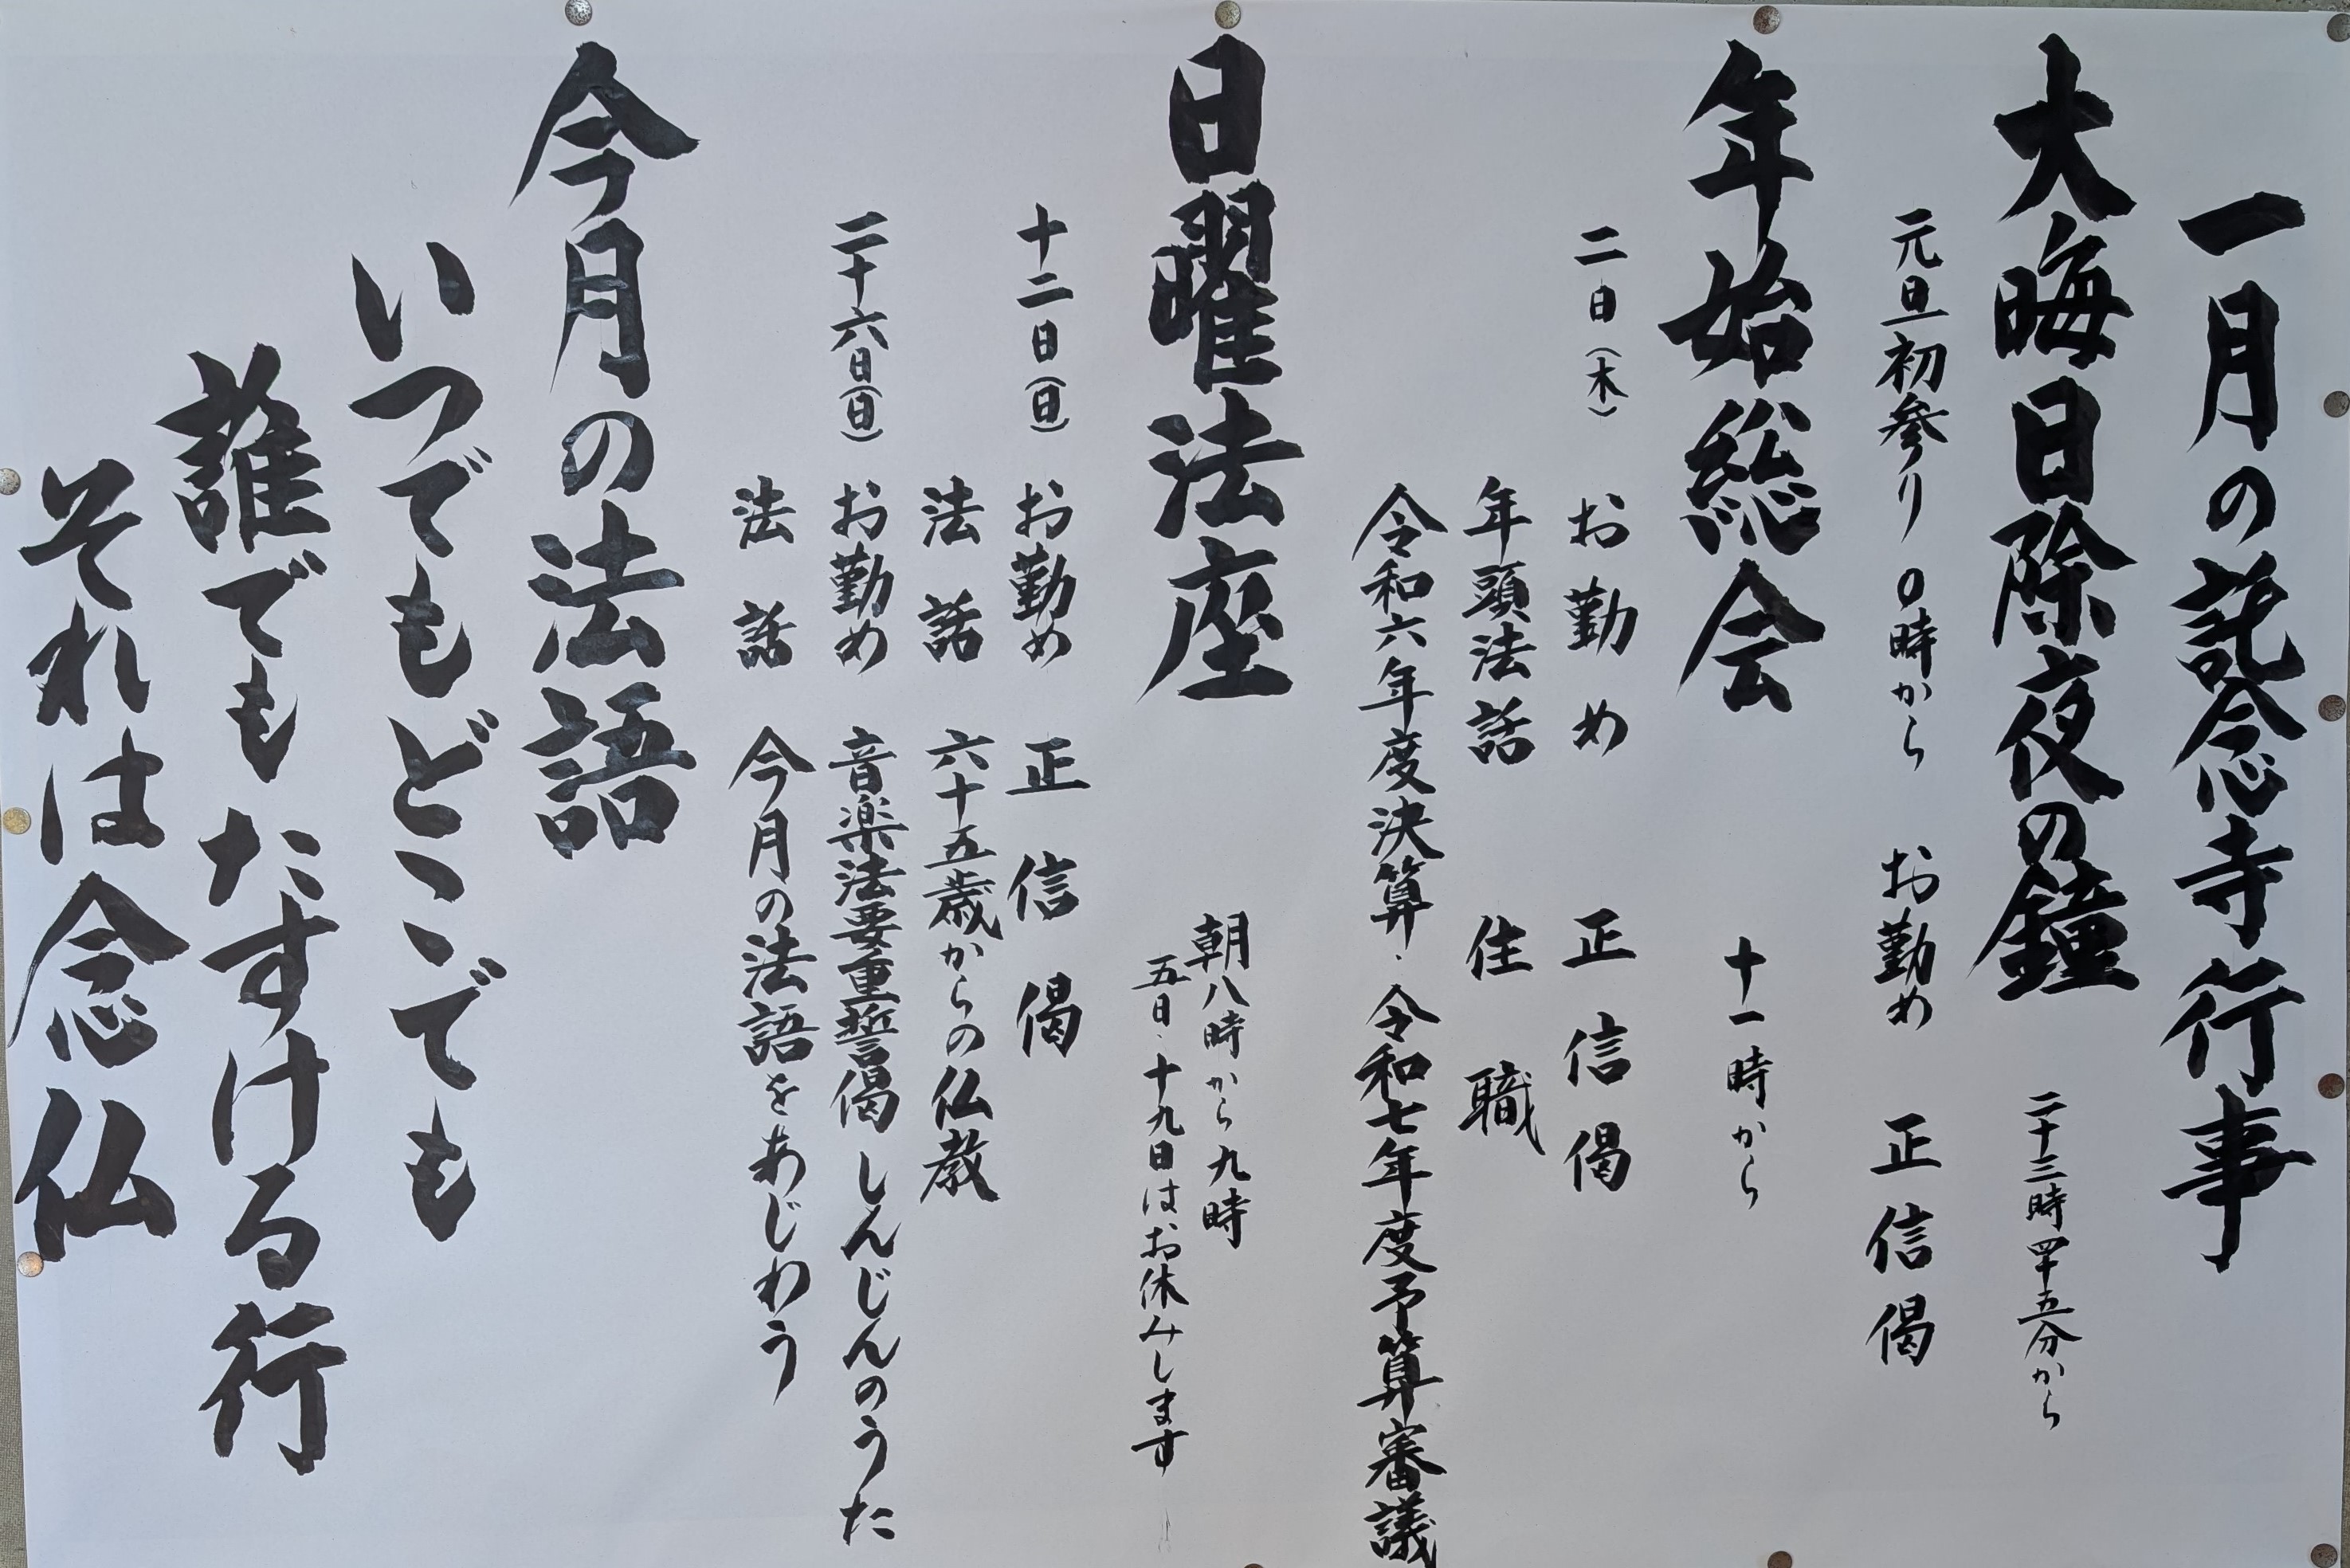 一月の託念寺行事
大晦日除夜の鐘 二十三時四十五分から
元旦初参り 0時から お勤め 正信偈
年始総会 十一時から
二日(木) お勤め 正信偈
年頭法話 住職
令和六年度決算・令和七年度予算審議
日曜法座 朝八時から九時
五日・十九日はお休みします
十二日(日) お勤め 正信偈
法話 六十五歳からの仏教
二十六日(日) お勤め 音楽法要重誓偈 しんじんのうた
法話 今月の法語をあじわう
今月の法語
いつでもどこでも
誰でもたすける行
それは念仏